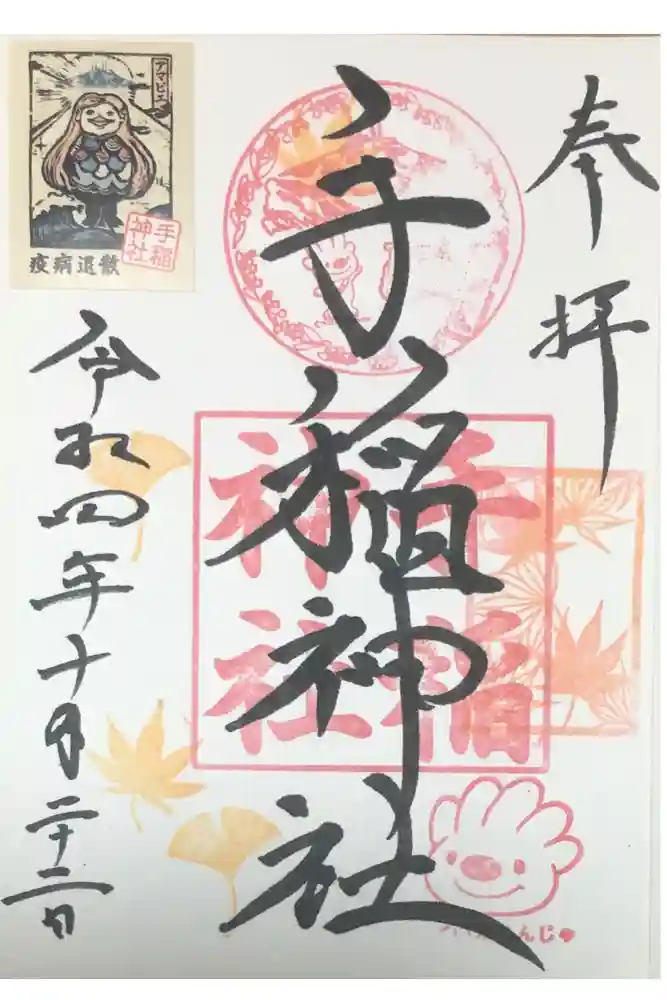 奉拝
手稲神社
手稲神社
令和四年十月二十二日
アマビエ
手稲神社
疫病退散
んじゅ